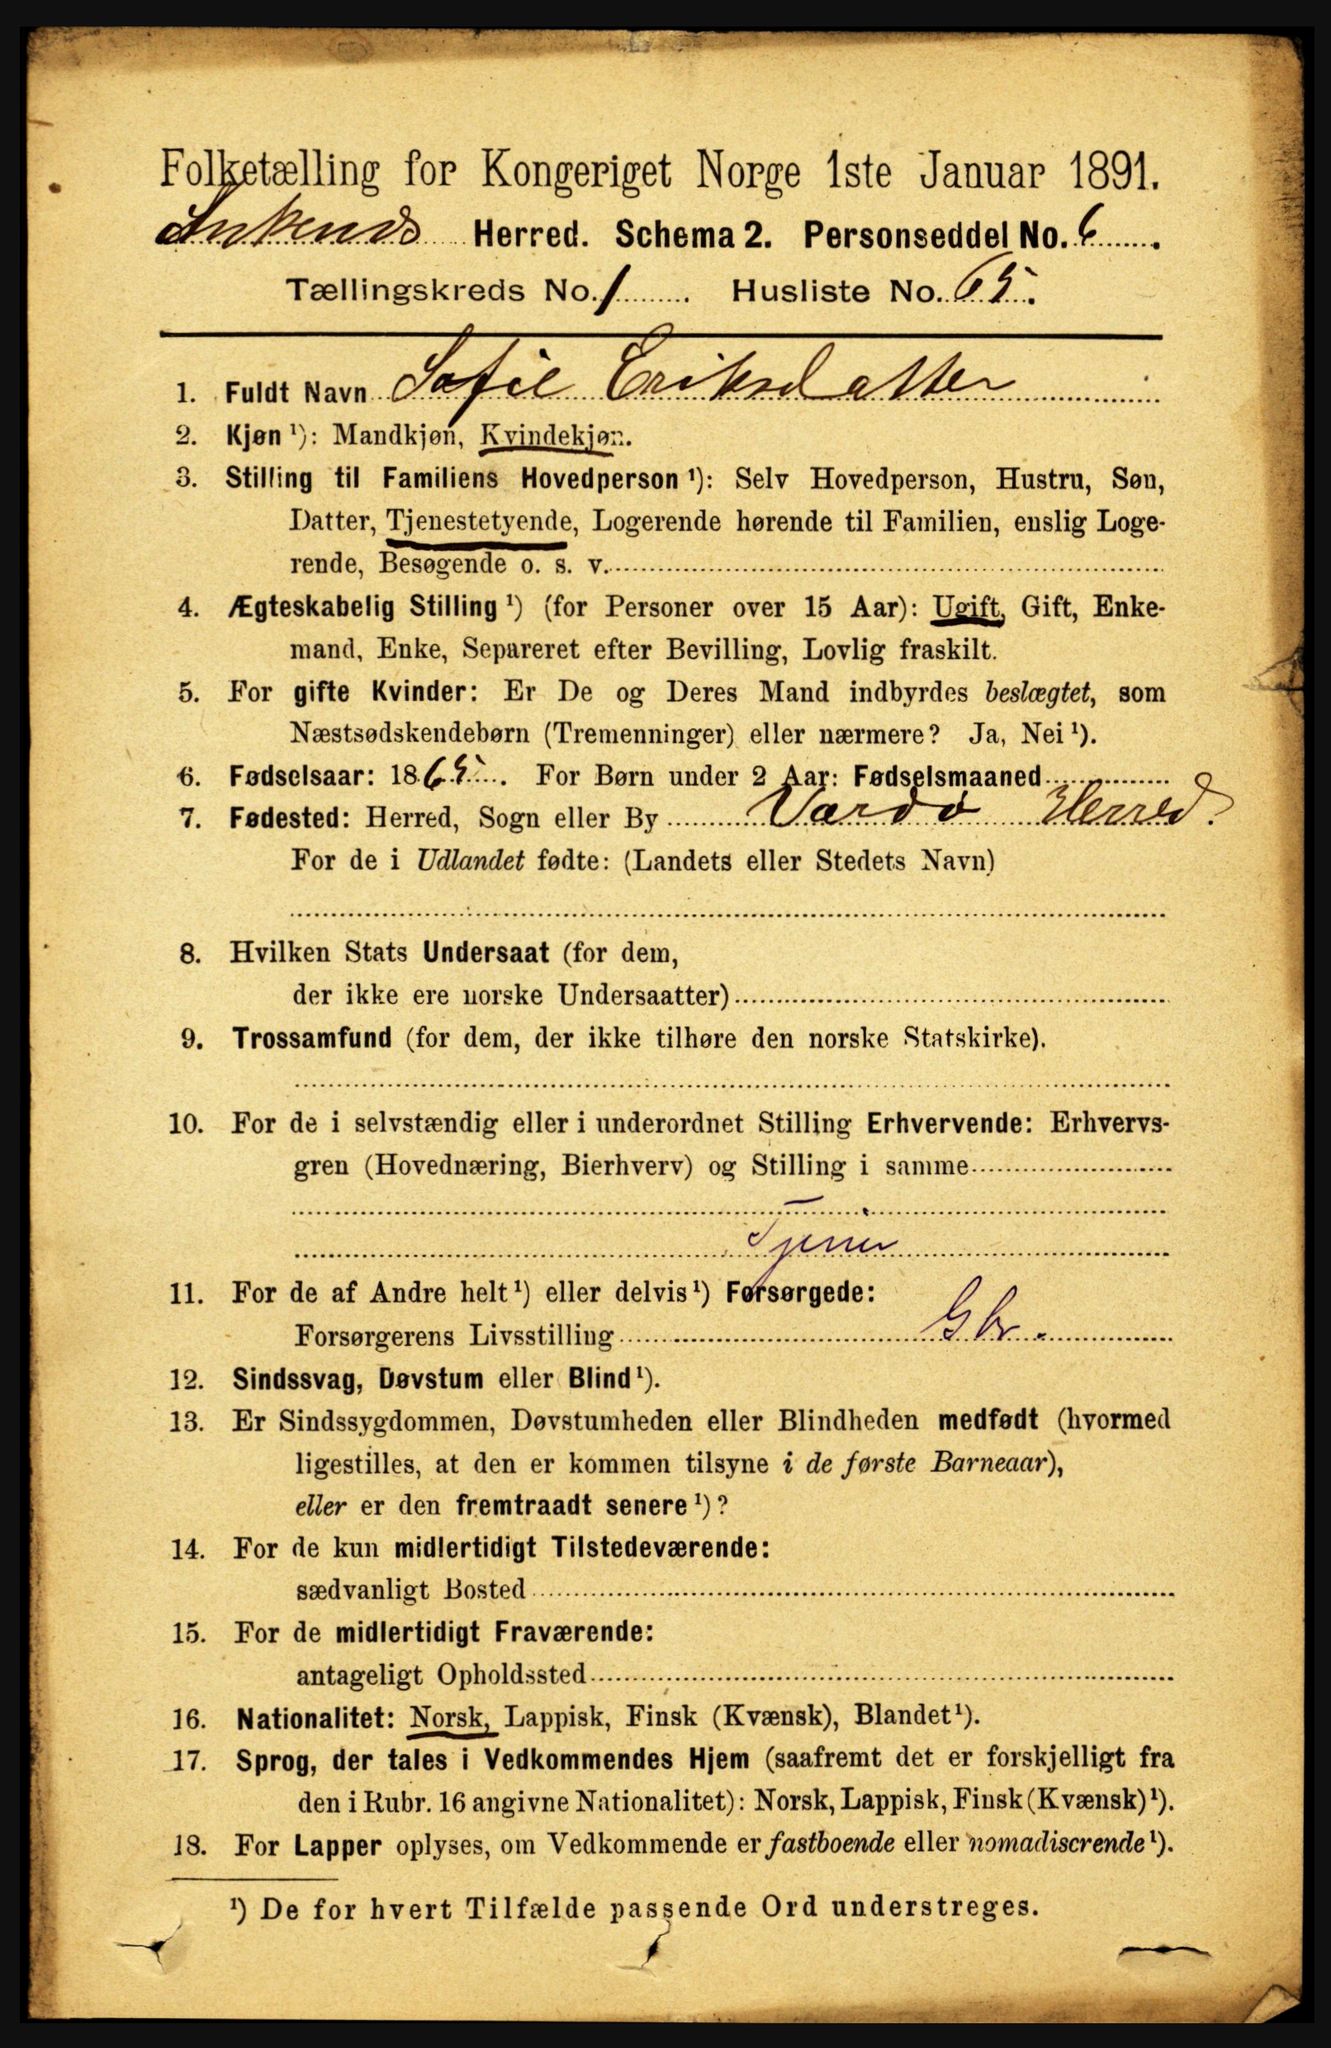 Folketælling for Kongeriget Norge 1ste Januar 1891.
Ankenes Herred. Schema 2. Personseddel No. 6.
Tællingskreds No. 1. Husliste No. 65.
1. Fuldt Navn Sofie Eriksdatter
2. Kjøn ¹): Mandkjøn, Kvindekjøn.
3. Stilling til Familiens Hovedperson ¹): Selv Hovedperson, Hustru, Søn,
Datter, Tjenestetyende, Logerende hørende til Familien, enslig Loge-
rende, Besøgende o. s. v.
4. Ægteskabelig Stilling ¹) (for Personer over 15 Aar): Ugift, Gift, Enke-
mand, Enke, Separeret efter Bevilling, Lovlig fraskilt.
5. For gifte Kvinder: Er De og Deres Mand indbyrdes beslægtet, som
Næstsødskendebørn (Tremenninger) eller nærmere? Ja, Nei ¹).
6. Fødselsaar: 1865. For Børn under 2 Aar: Fødselsmaaned
7. Fødested: Herred, Sogn eller By Vardø Herred.
For de i Udlandet fødte: (Landets eller Stedets Navn)
8. Hvilken Stats Undersaat (for dem,
der ikke ere norske Undersaatter)
9. Trossamfund (for dem, der ikke tilhøre den norske Statskirke).
10. For de i selvstændig eller i underordnet Stilling Erhvervende: Erhvervs-
gren (Hovednæring, Bierhverv) og Stilling i samme
Tjener
11. For de af Andre helt ¹) eller delvis ¹) Forsørgede:
Forsørgerens Livsstilling Gbr.
12. Sindssvag, Døvstum eller Blind ¹).
13. Er Sindssygdommen, Døvstumheden eller Blindheden medfødt (hvormed
ligestilles, at den er kommen tilsyne i de første Barneaar),
eller er den fremtraadt senere ¹)?
14. For de kun midlertidigt Tilstedeværende:
sædvanligt Bosted
15. For de midlertidigt Fraværende:
antageligt Opholdssted
16. Nationalitet: Norsk, Lappisk, Finsk (Kvænsk), Blandet ¹).
17. Sprog, der tales i Vedkommendes Hjem (saafremt det er forskjelligt fra
den i Rubr. 16 angivne Nationalitet): Norsk, Lappisk, Finsk (Kvænsk) ¹).
18. For Lapper oplyses, om Vedkommende er fastboende eller nomadiserende ¹).
¹) De for hvert Tilfælde passende Ord understreges.